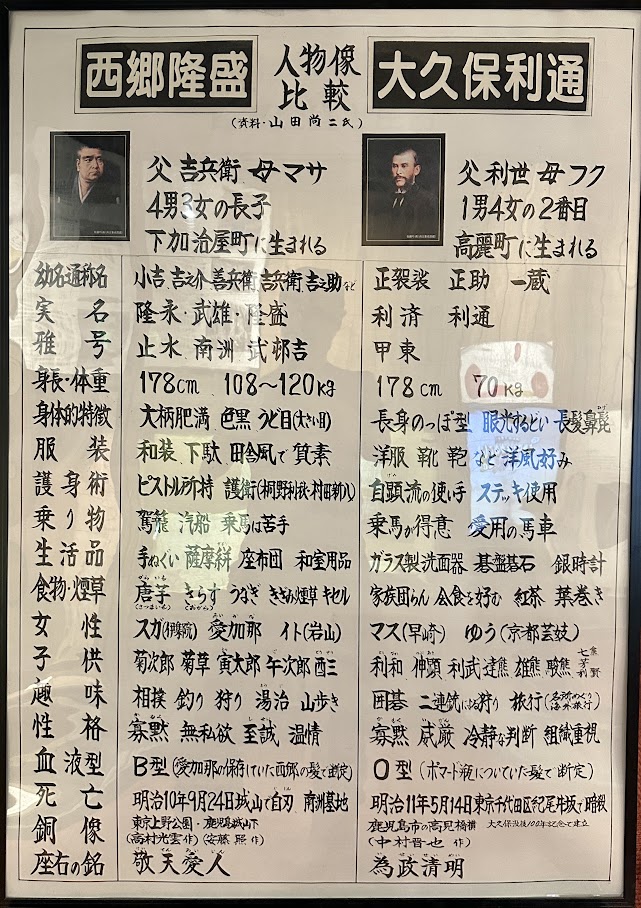 西郷隆盛 人物像比較 大久保利通
(資料・山田尚二氏)
父 吉兵衛 母 マサ
4男3女の長子
下加治屋町に生まれる
父 利世 母 フク
1男4女の2番目
高麗町に生まれる
幼名通称名 小吉 吉之介 善兵衛 吉兵衛 吉之助など 正袈裟 正助 一蔵
実名 隆永・武雄・隆盛 利済 利通
雅号 止水 南洲 武邨吉 甲東
身長・体重 178cm 108〜120kg 178cm 70kg
身体的特徴 大柄肥満 色黒 うど目(太い目) 長身のっぽ型 眼光するどい 長髪鼻髭
服装 和装、下駄 田舎風で質素 洋服 靴 鞄など洋風好み
護身術 ピストル所持 護衛(桐野利秋・村田新八) 自顕流の使い手 ステッキ使用
乗り物 駕籠 汽船 乗馬は苦手 乗馬が得意 愛用の馬車
生活品 手ぬぐい 薩摩絣 座布団 和室用品 ガラス製洗面器 碁盤碁石 銀時計
食物・煙草 唐芋(さつまいも) きらす うなぎ きざみ煙草 キセル 家族団らん 会食を好む 紅茶 葉巻き
女性 スガ(伊集院) 愛加那 イト(岩山) マス(早崎) ゆう(京都芸妓)
子供 菊次郎 菊草 寅太郎 午次郎 酉三 利和 伸顕 利武 達熊 雄熊 駿熊 七熊 芳
趣味 相撲 釣り 狩り 湯治 山歩き 囲碁 二連銃による狩り 旅行(名所めぐり 海外旅行)
性格 寡黙 無私欲 至誠 温情 寡黙 威厳 冷静な判断 組織重視
血液型 B型(愛加那の保存していた西郷の髪で断定) O型(ポマード瓶についていた髪で断定)
死亡 明治10年9月24日城山で自刃、南洲墓地 明治11年5月14日東京千代田区紀尾井坂で暗殺
銅像 東京上野公園・(高村光雲 作) 鹿児島城山下(安藤 照 作) 鹿児島市の高見橋横(中村晋也 作) 大久保没後100年記念で建立
座右の銘 敬天愛人 為政清明